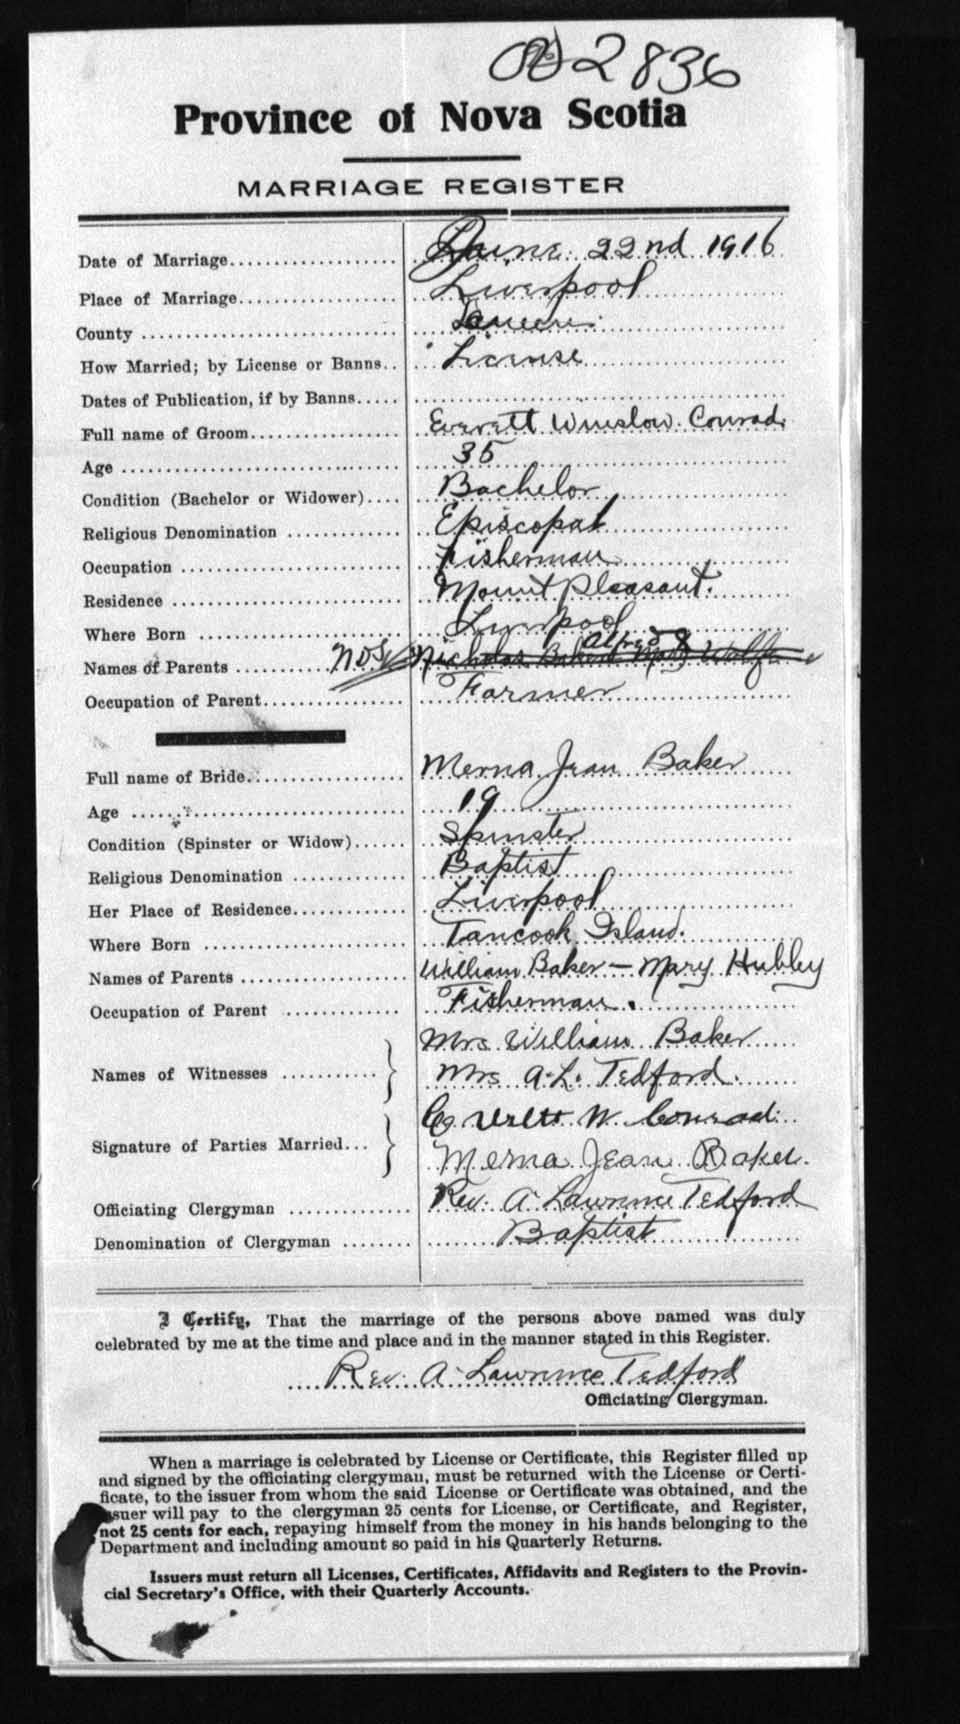 2836
Province of Nova Scotia
MARRIAGE REGISTER
Date of Marriage.................. June 22nd 1916
Place of Marriage.................. Liverpool
County .......................... Queens
How Married; by License or Banns.. License
Dates of Publication, if by Banns.....
Full name of Groom................. Everett Winslow Conrad
Age ............................. 35
Condition (Bachelor or Widower).... Bachelor
Religious Denomination ............. Episcopal
Occupation ....................... Fisherman
Residence ........................ Mount Pleasant.
Where Born ...................... Liverpool
Alfred &
Names of Parents .......... N.D.S. Nicholas Baker Mary Wolfe
Occupation of Parent................ Farmer
Full name of Bride.................. Merna Jean Baker
Age ............................. 19
Condition (Spinster or Widow)...... Spinster
Religious Denomination ............. Baptist
Her Place of Residence............. Liverpool
Where Born ...................... Tancook Island.
Names of Parents .................. William Baker – Mary Hubley
Occupation of Parent ............. Fisherman.
Mrs William Baker
Names of Witnesses ............ Mrs A. L. Tedford.
Everett W. Conrad
Signature of Parties Married... Merna Jean Baker.
Officiating Clergyman .............. Rev. A Lawrence Tedford
Denomination of Clergyman ........ Baptist
I Certify, That the marriage of the persons above named was duly
celebrated by me at the time and place and in the manner stated in this Register.
Rev. A Lawrence Tedford
Officiating Clergyman.
When a marriage is celebrated by License or Certificate, this Register filled up
and signed by the officiating clergyman, must be returned with the License or Certi-
ficate, to the issuer from whom the said License or Certificate was obtained, and the
issuer will pay to the clergyman 25 cents for License, or Certificate, and Register,
not 25 cents for each, repaying himself from the money in his hands belonging to the
Department and including amount so paid in his Quarterly Returns.
Issuers must return all Licenses, Certificates, Affidavits and Registers to the Provin-
cial Secretary's Office, with their Quarterly Accounts.